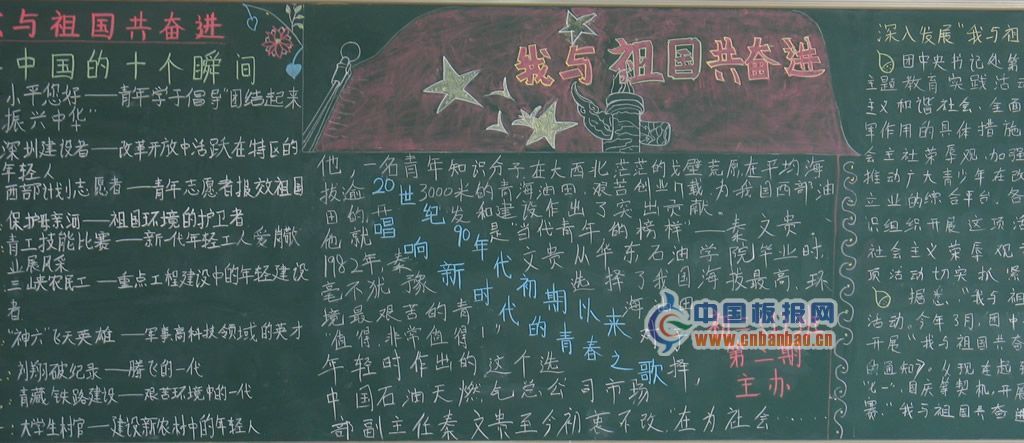 与祖国共奋进
中国的十个瞬间
小平您好——青年学子倡导"团结起来
振兴中华"
深圳建设者——改革开放中活跃在特区的
年轻人
西部计划志愿者——青年志愿者报效祖国
保护母亲河——祖国环境的护卫者
青工技能比赛——新一代年轻工人爱岗敬
业展风采
三峡农民工——重点工程建设中的年轻建设
者
"神六"飞天英雄——军事高科技领域的英才
刘翔破纪录——腾飞的一代
青藏铁路建设——艰苦环境中的一代
大学生村官——建设新农村中的年轻人
我与祖国共奋进
20世纪90年代初期以来
唱响新时代的青春之歌
他,一名青年知识分子在大西北茫茫的戈壁荒原在平均海
拔逾3000米的青海油田,艰苦创业17载,为我国西部油
田的开发和建设作出了突出贡献。
他就是"当代青年的榜样"——秦文贵
1982年,秦文贵从华东石油学院毕业时,
毫不犹豫选择了我国海拔最高、环
境最艰苦的青海
值得,非常值得!"
年轻时作出的这个选择,
中国石油天燃气总公司市场
部副主任秦文贵至今初衷不改"在为社会……
第二期
主办
中国板报网
www.cnbanbao.cn
深入发展"我与祖
团中央书记处第
主题教育实践活动
主义和谐社会、全面
军作用的具体措施
会主社荣辱观,加强
推动广大青少年在改
立业的综合平台。各
识组织开展这项活
社会主义荣辱观
项活动切实抓紧
据悉,"我与祖
活动。今年3月,团中
开展"我与祖国共奋
的通知》,
国庆等契机,开展
赛""我与祖国共奋进